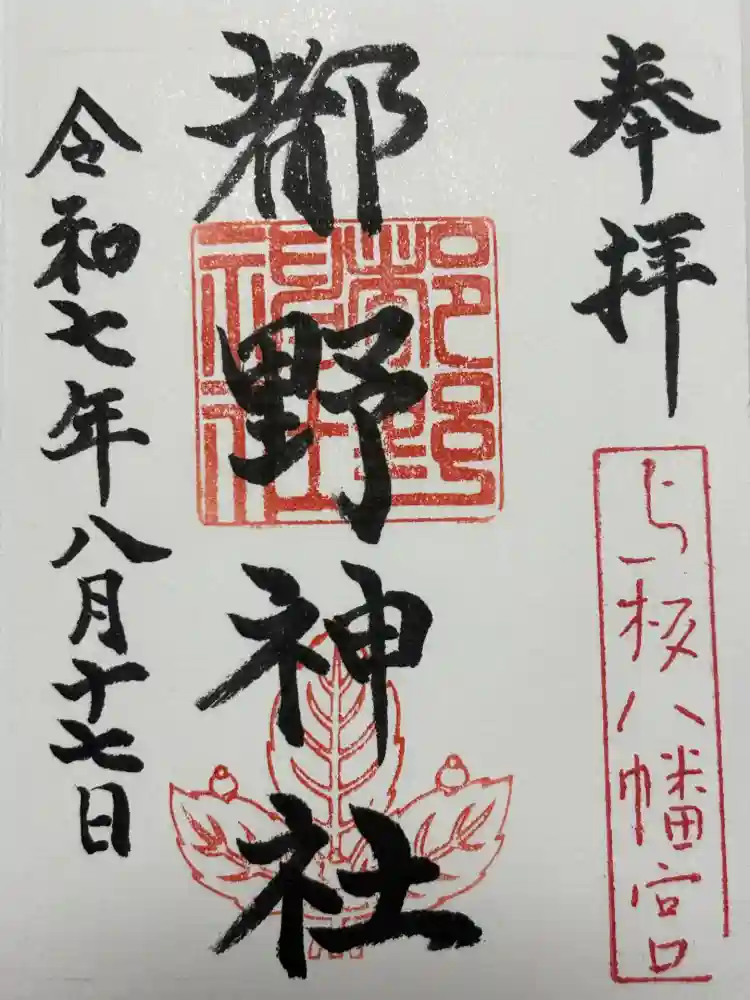 奉拝
与板八幡宮
都野神社
都野神社
令和七年八月十七日